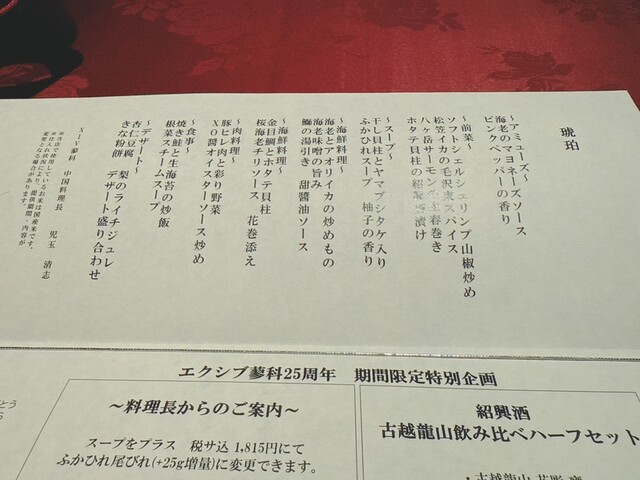 琥珀
～アミューズ～
海老のマヨネーズソース
ピンクペッパーの香り
～前菜～
ソフトシェルシュリンプ山椒炒め
松笠イカの毛沢東スパイス
八ヶ岳サーモン生春巻き
ホタテ貝柱の紹興酒漬け
～スープ～
干し貝柱とヤマブシタケ入り
ふかひれスープ　柚子の香り
～海鮮料理～
海老とアオリイカの炒めもの
海老味噌の旨み
鰤の湯引き　甜醬油ソース
～海鮮料理～
金目鯛とホタテ貝柱
桜海老チリソース　花巻添え
～肉料理～
豚ヒレ肉と彩り野菜
XO醬オイスターソース炒め
～食事～
焼き鮭と生海苔の炒飯
根菜スチームスープ
～デザート～
杏仁豆腐　梨のライチジュレ
きな粉餅　デザート盛り合わせ
XIV蓼科　中国料理長　児玉　清志
※当店で使用しているお米は国産米です。
※仕入れ状況により、提供期間、内容が
変更となる場合があります。
エクシブ蓼科25周年　期間限定特別企画
～料理長からのご案内～
スープをプラス　税サ込 1,815円にて
ふかひれ尾びれ(+25g増量)に変更できます。
紹興酒
古越龍山飲み比べハーフセット
とう